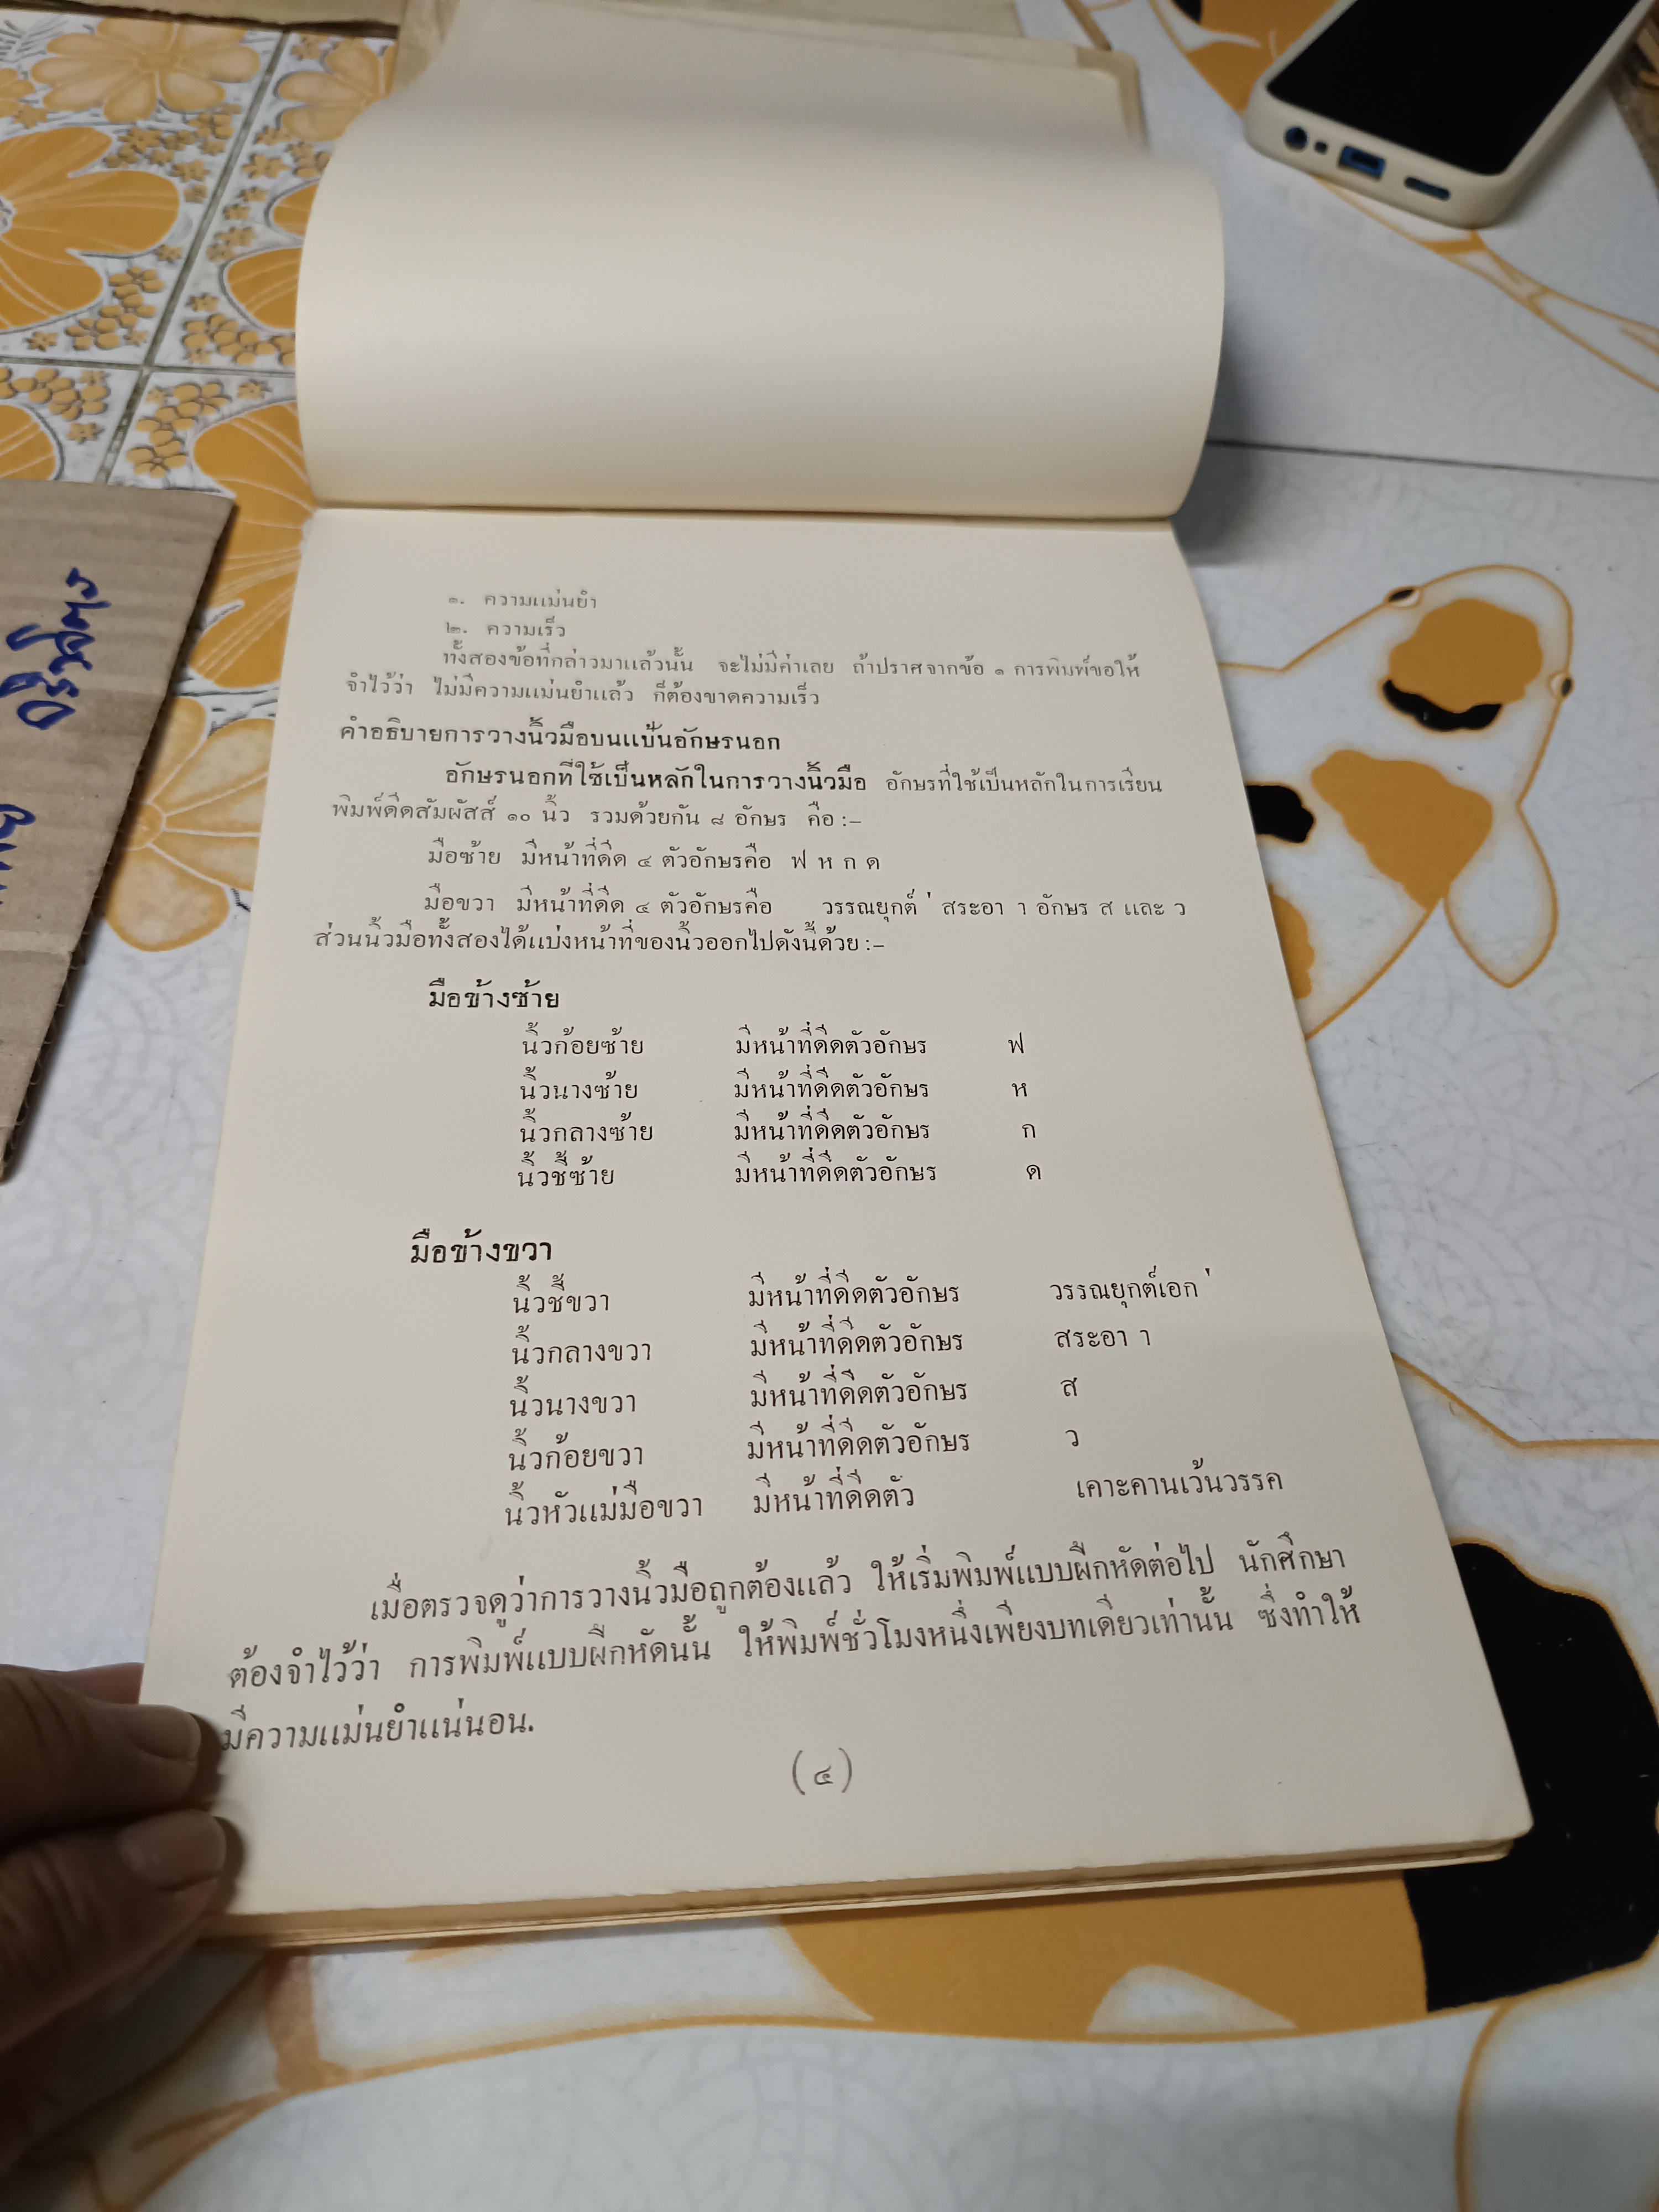 ๑. ความแม่นยำ
๒. ความเร็ว
ทั้งสองข้อที่กล่าวมาแล้วนั้น จะไม่มีค่าเลย ถ้าปราศจากข้อ ๑ การพิมพ์ขอให้
จำไว้ว่า ไม่มีความแม่นยำแล้ว ก็ต้องขาดความเร็ว
คำอธิบายการวางนิ้วมือบนแป้นอักษรนอก
อักษรนอกที่ใช้เป็นหลักในการวางนิ้วมือ อักษรที่ใช้เป็นหลักในการเรียน
พิมพ์ดีดสัมผัสส์ ๑๐ นิ้ว รวมด้วยกัน ๘ อักษร คือ :–
มือซ้าย มีหน้าที่ดีด ๔ ตัวอักษรคือ ฟ ห ก ด
มือขวา มีหน้าที่ดีด ๔ ตัวอักษรคือ วรรณยุกต์ ่ สระอา า อักษร ส และ ว
ส่วนนิ้วมือทั้งสองได้แบ่งหน้าที่ของนิ้วออกไปดังนี้ด้วย :–
มือข้างซ้าย
นิ้วก้อยซ้าย มีหน้าที่ดีดตัวอักษร ฟ
นิ้วนางซ้าย มีหน้าที่ดีดตัวอักษร ห
นิ้วกลางซ้าย มีหน้าที่ดีดตัวอักษร ก
นิ้วชี้ซ้าย มีหน้าที่ดีดตัวอักษร ด
มือข้างขวา
นิ้วชี้ขวา มีหน้าที่ดีดตัวอักษร วรรณยุกต์เอก ่
นิ้วกลางขวา มีหน้าที่ดีดตัวอักษร สระอา า
นิ้วนางขวา มีหน้าที่ดีดตัวอักษร ส
นิ้วก้อยขวา มีหน้าที่ดีดตัวอักษร ว
นิ้วหัวแม่มือขวา มีหน้าที่ดีดตัว เคาะคานเว้นวรรค
เมื่อตรวจดูว่าการวางนิ้วมือถูกต้องแล้ว ให้เริ่มพิมพ์แบบฝึกหัดต่อไป นักศึกษา
ต้องจำไว้ว่า การพิมพ์แบบฝึกหัดนั้น ให้พิมพ์ชั่วโมงหนึ่งเพียงบทเดียวเท่านั้น ซึ่งทำให้
มีความแม่นยำแน่นอน.
(๔)